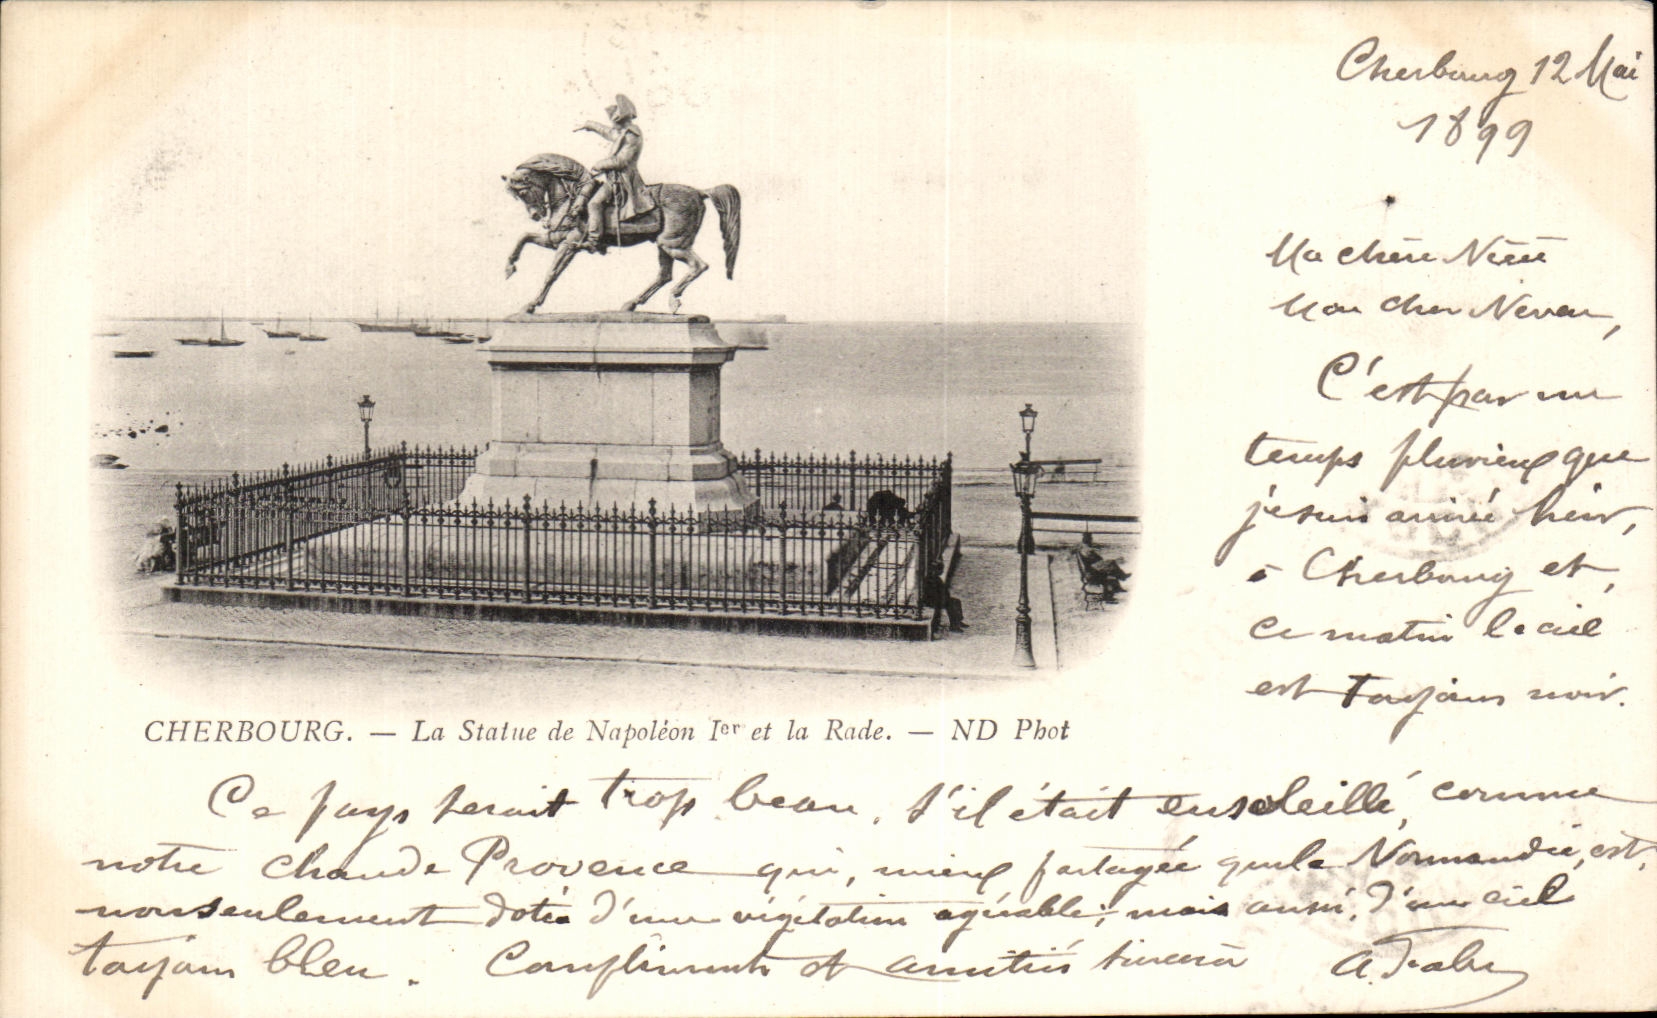 Cherbourg 12 Mai
1899
Ma chère Nièce
Mon cher Neveu,
C'est par un
temps pluvieux que
je suis arrivé hier,
à Cherbourg et,
ce matin le ciel
est toujours noir.
CHERBOURG. — La Statue de Napoléon Ier et la Rade. — ND Phot
Ce pays serait trop beau, s'il était ensoleillé, comme
notre chaude Provence qui, mieux partagée que la Normandie, est,
non seulement dotée d'une végétation agréable; mais aussi, d'un ciel
toujours bleu. Compliments et amitiés sincères A.